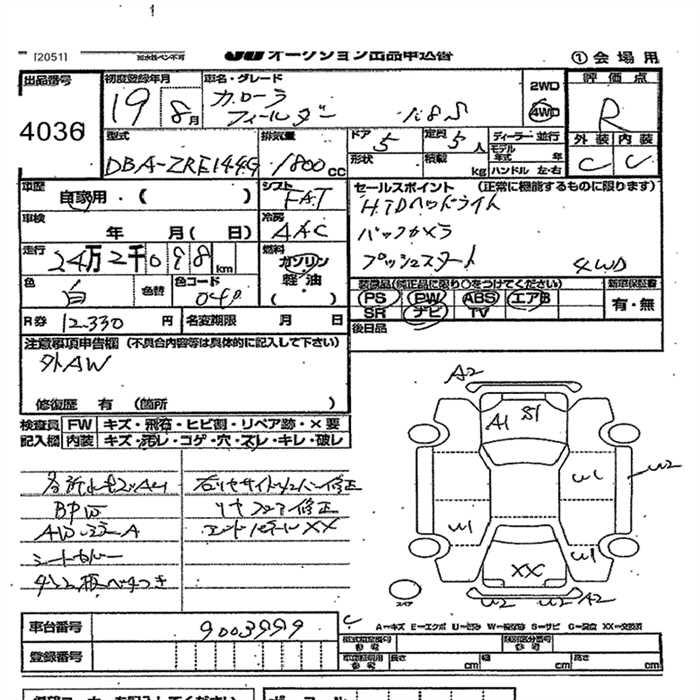 1
[2051]
オークション出品申込書
①会場用
出品番号
4036
初度登録年月
19 8月
車名・グレード
カローラ
フィールダー 1.8S
2WD
4WD
評価点
R
外装 内装
C C
型式
DBA-ZRE144G
排気量
1800cc
ドア 5
形状
定員 5人
積載 kg
ディーラー・並行
モデル年式 年
ハンドル 左・右
車歴
自家用・( )
シフト
FAT
セールスポイント (正常に機能するものに限ります)
HIDヘッドライト
バックカメラ
プッシュスタート 4WD
車検
年 月( 日)
冷房
AAC
走行
24万2千098km
燃料
ガソリン
軽・油
( )
色
白
色替
色コード
040
装備品(純正品に限り○をつけてください)
PS PW ABS エアB
SR ナビ TV
新車保証書
有・無
R券 12330円
名変期限 月 日
後日品
注意事項申告欄 (不具合内容等は具体的に記入して下さい)
外AW
修復歴 有 (箇所 )
検査員記入欄
FW キズ・飛石・ヒビ割・リペア跡・×要
内装 キズ・汚レ・コゲ・穴・スレ・キレ・破レ
BPW
シートカバー
修正
リヤフロア修正
エンドパネルXX
A2
A1 S1
W1
W2
W1
W1
XX
W2 W2 A2
スペア
車台番号
9003999
登録番号
A=キズ E=エクボ U=凹み W=板金跡 S=サビ C=腐食 XX=交換済
型式指定番号
類別区分番号
長さ cm
幅 cm
高さ cm